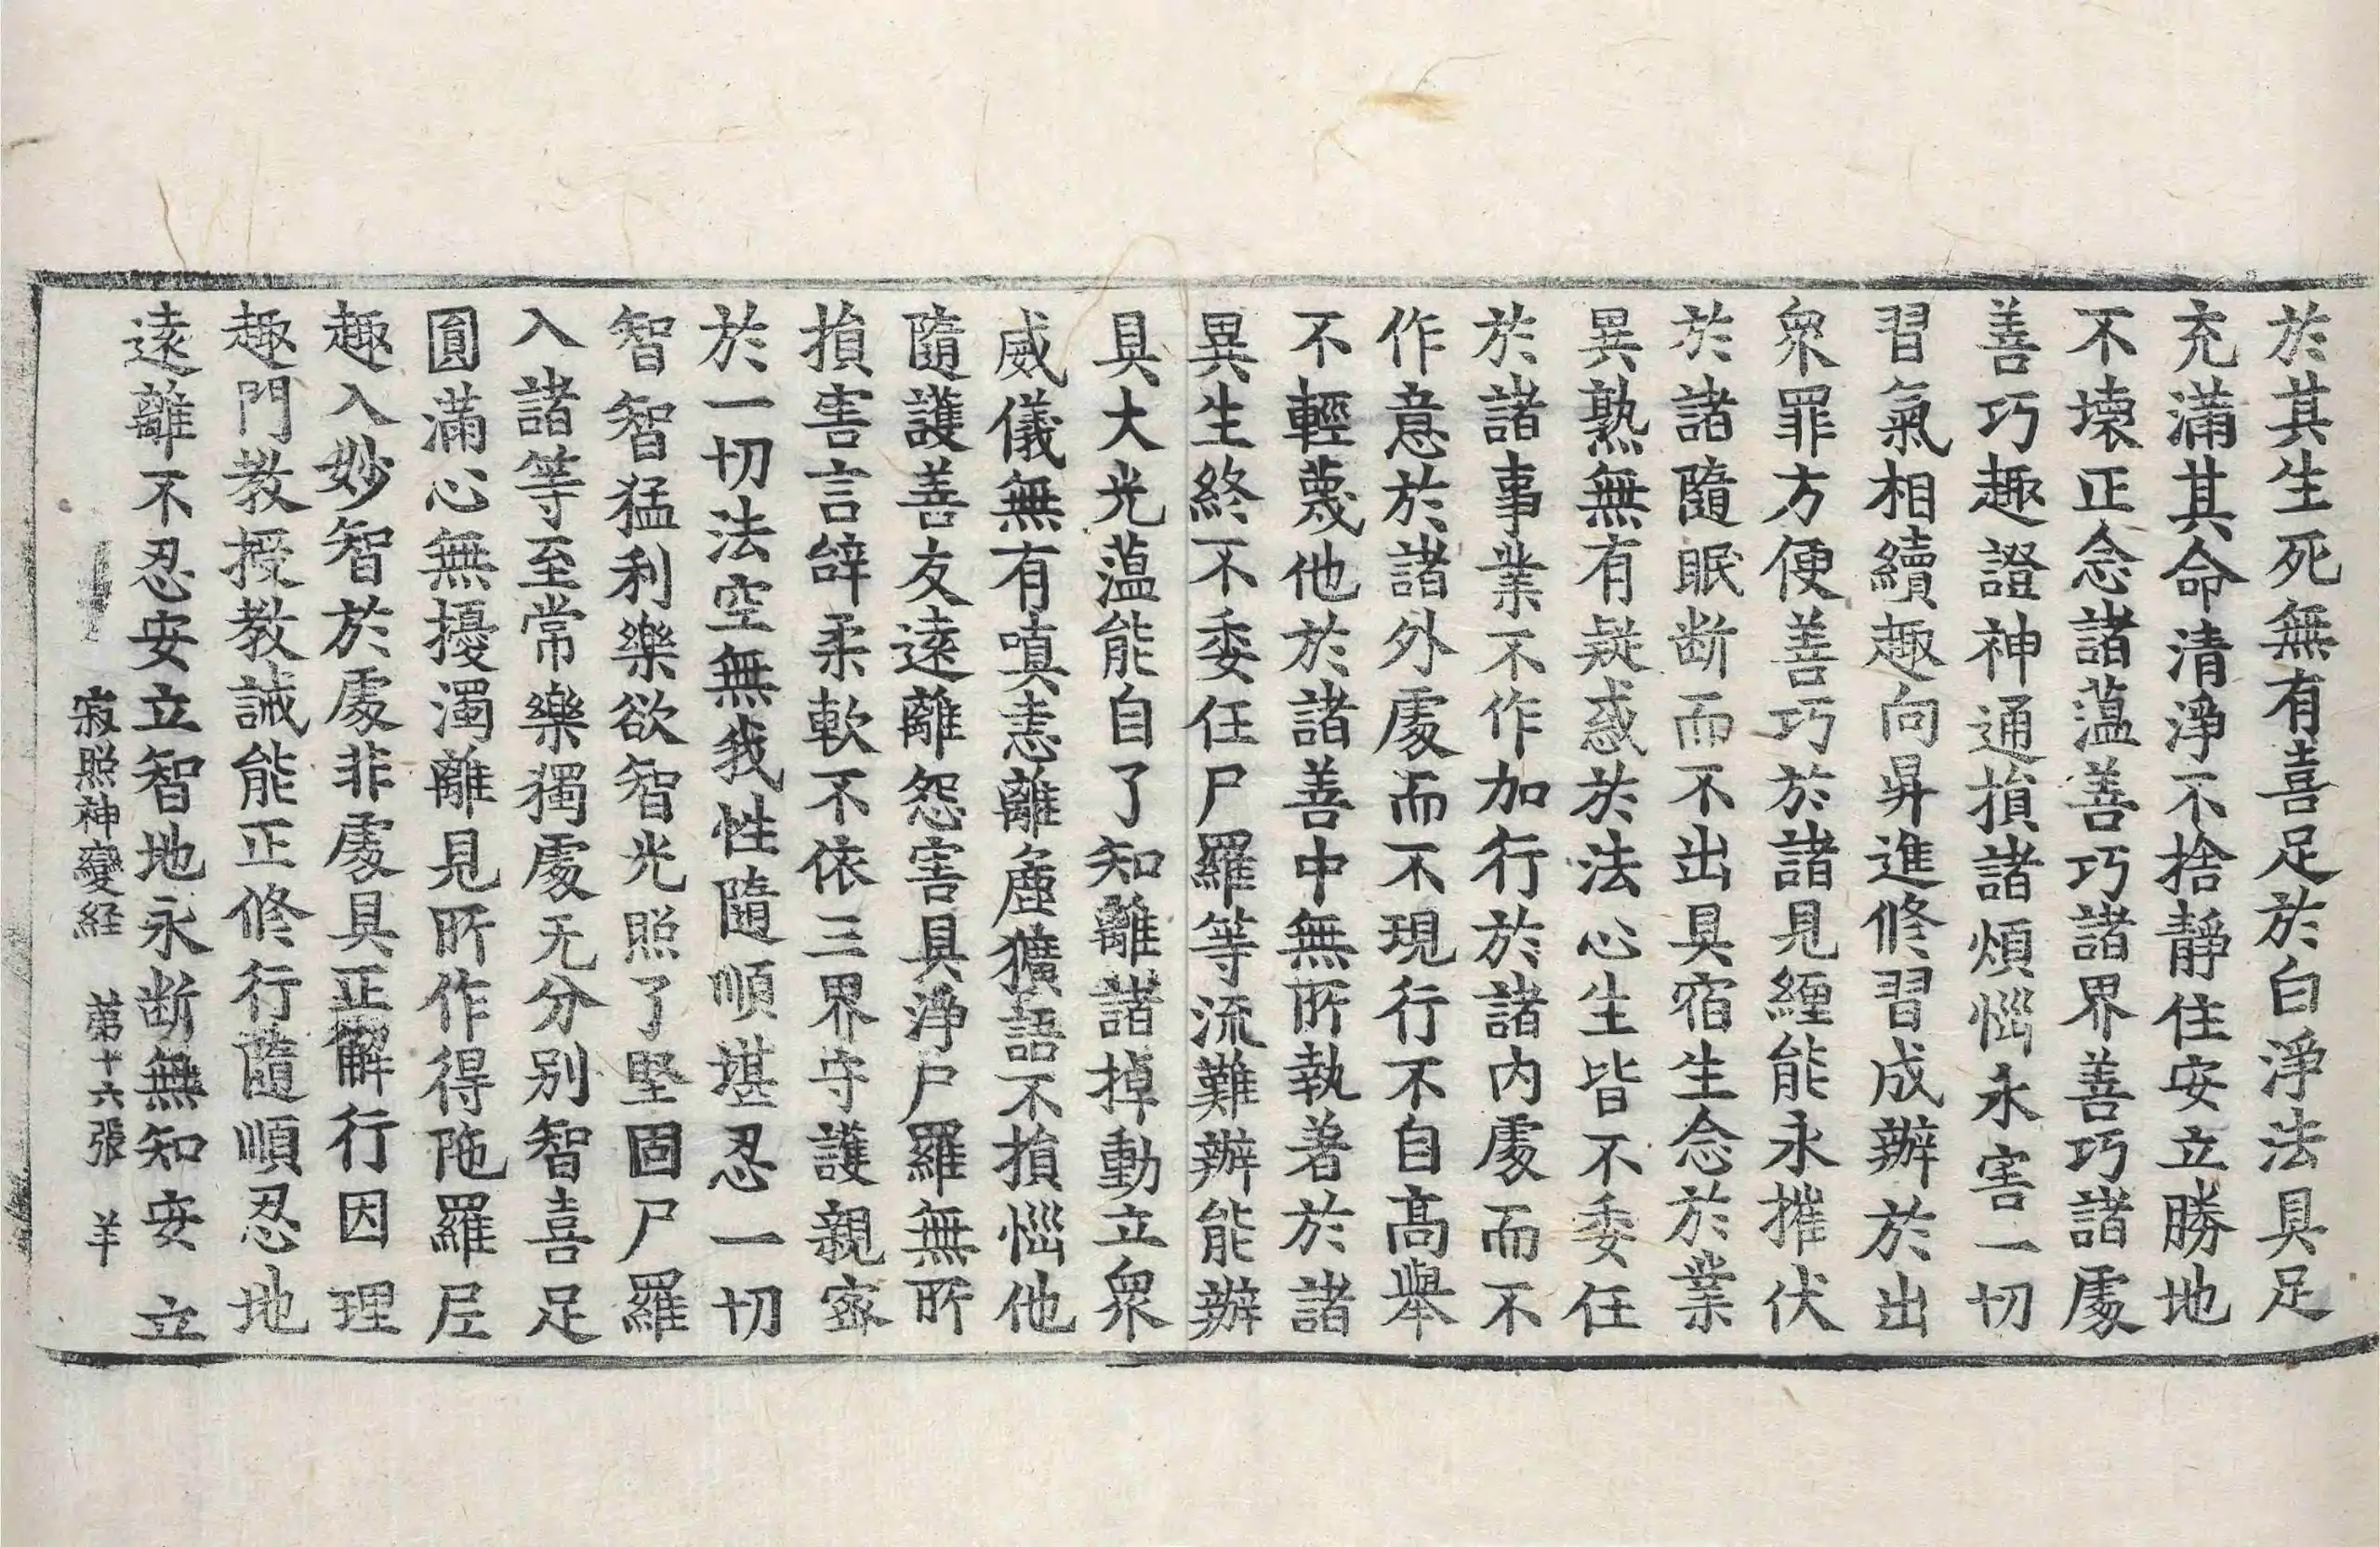 於其生死無有喜足於白淨法具足
充滿其命清淨不捨靜住安立勝地
不壞正念諸薀善巧諸界善巧諸處
善巧趣證神通損諸煩惱永害一切
習氣相續趣向昇進修習成辦於出
衆罪方便善巧於諸見纏能永摧伏
於諸隨眠断而不出具宿生念於業
異熟無有疑惑於法心生皆不委任
於諸事業不作加行於諸内處而不
作意於諸外處而不現行不自髙舉
不輕蔑他於諸善中無所執著於諸
異生終不委任尸羅等流難辦能辦
具大光薀能自了知離諸掉動立衆
威儀無有嗔恚離麁獷語不損惱他
隨護善友遠離怨害具淨尸羅無所
損害言辝柔軟不依三界守護親宻
於一切法空無我性隨順堪忍一切
智智猛利樂欲智光照了堅固尸羅
入諸等至常樂獨處无分别智喜足
圓滿心無擾濁離見所作得陁羅尼
趣入妙智於處非處具正解行因理
趣門教授教誡能正修行隨順忍地
遠離不忍安立智地永断無知安立
寂照神變経 苐十六張 羊